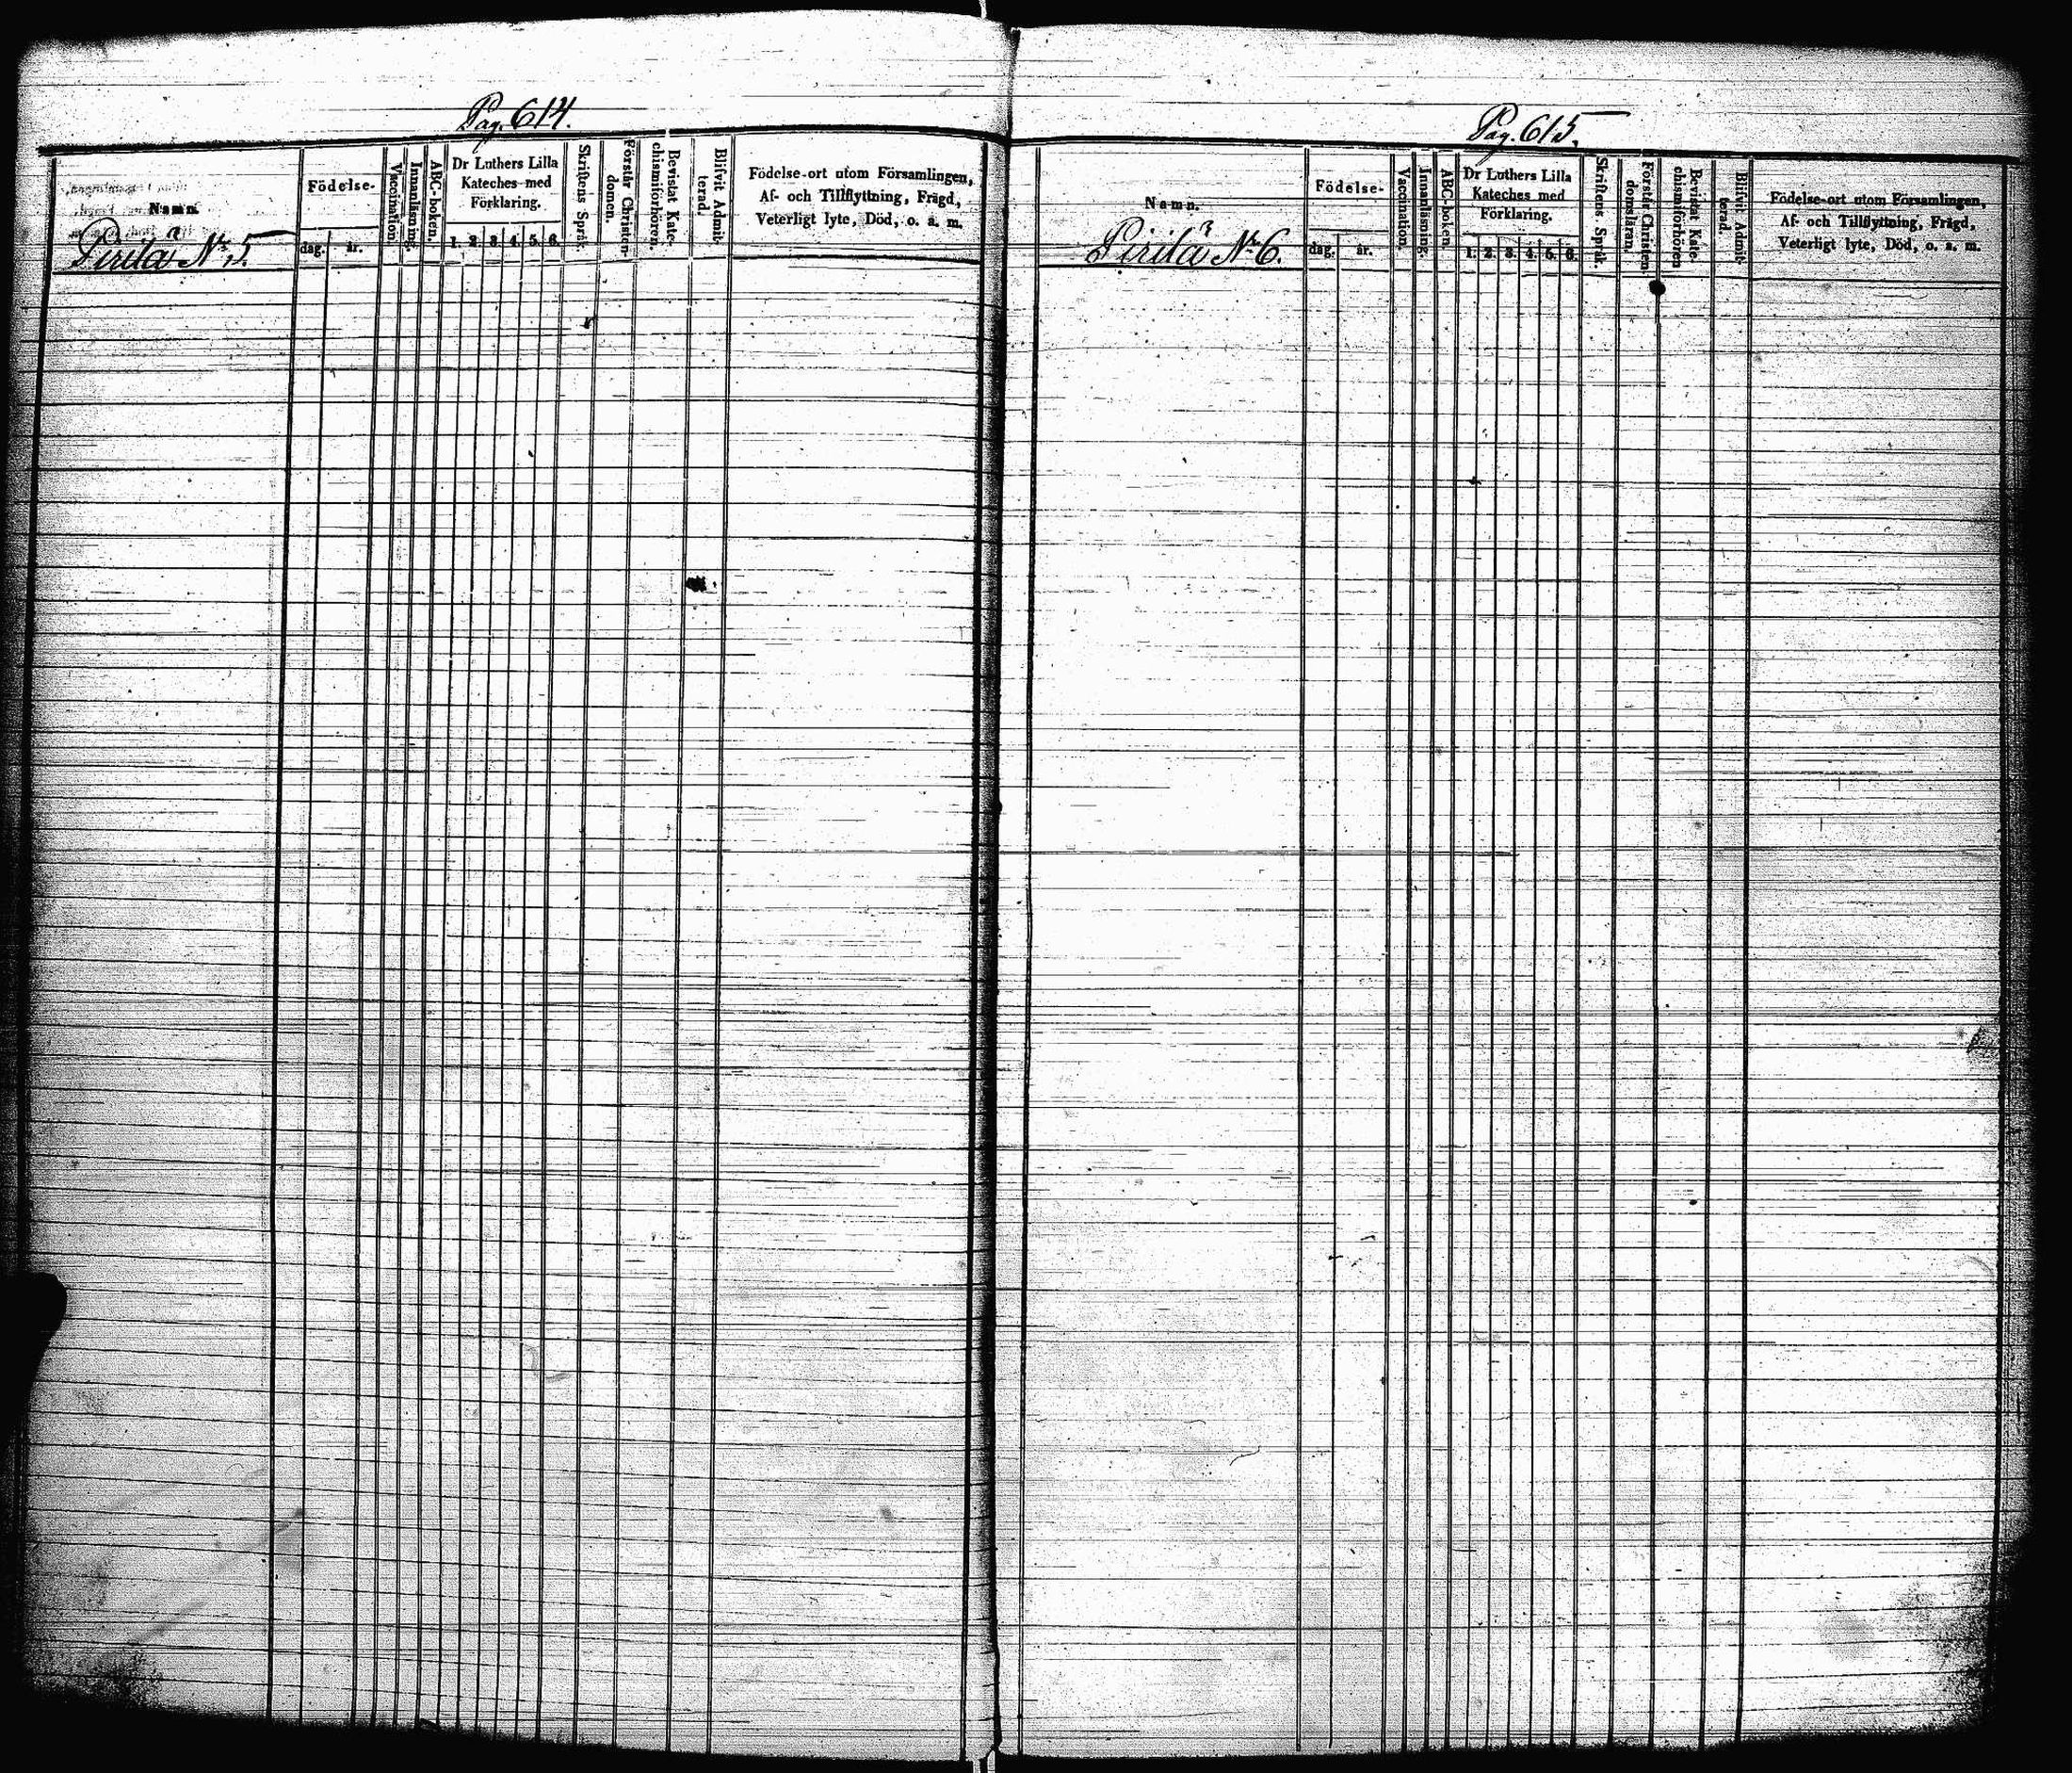 Pag. 614.
Namn.
Pirilä Nr 5.
Födelse-
dag.
år.
Vaccination.
Innanläsning.
ABC-boken.
Dr Luthers Lilla
Kateches med
Förklaring.
1. 2. 3. 4. 5. 6.
Skriftens Språk.
Förstår Christen-
domen.
Bevistat Kate-
chismiförhören.
Blifvit Admit-
terad.
Födelse-ort utom Församlingen,
Af- och Tillflyttning, Frägd,
Veterligt lyte, Död, o. a. m.
Pag. 615.
Namn.
Pirilä Nr 6.
Födelse-
dag.
år.
Vaccination.
Innanläsning.
ABC-boken.
Dr Luthers Lilla
Kateches med
Förklaring.
1. 2. 3. 4. 5. 6.
Skriftens Språk.
Förstår Christen-
domsläran.
Bevistat Kate-
chismiförhören
Blifvit Admit-
terad.
Födelse-ort utom Församlingen,
Af- och Tillflyttning, Frägd,
Veterligt lyte, Död, o. a. m.